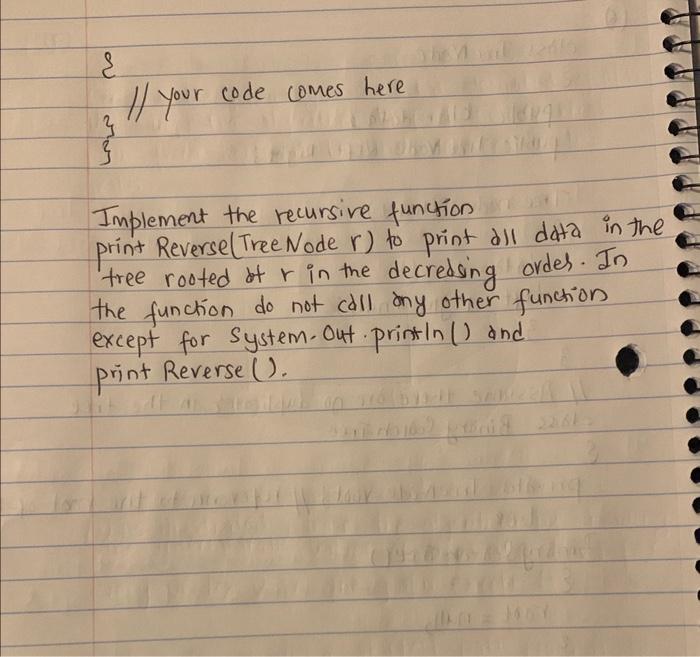 {
// your code comes here
}
}
Implement the recursive function
print Reverse(Tree Node r) to print all data in the
tree rooted at r in the decreasing order. In
the function do not call any other function
except for System.Out.println() and
print Reverse().